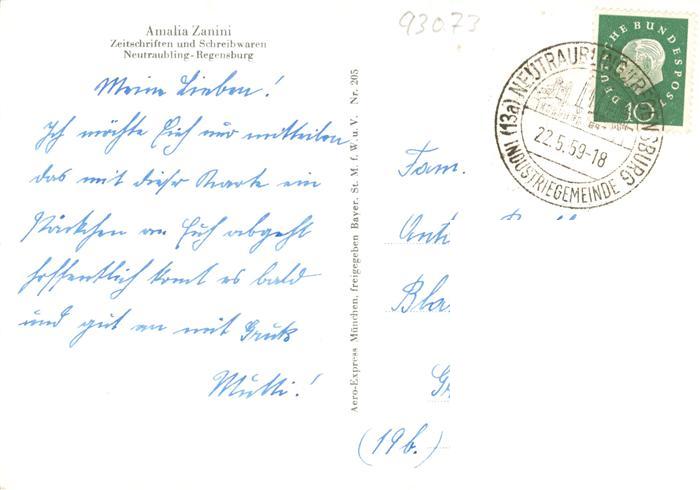 Amalia Zanini
Zeitschriften und Schreibwaren
Neutraubling-Regensburg
93073
Meine Lieben!
Ich möchte Euch nur mitteilen
das mit dieser Karte ein
Päckchen an Euch abgeht
hoffentlich komt es bald
und gut an mit Gruß
Mutti!
Aero-Express München, freigegeben Bayer. St. M. f. W. u. V. Nr. 205
DEUTSCHE BUNDESPOST
10
(13a) NEUTRAUBLING Ü/REGENSBURG
22.5.59-18
INDUSTRIEGEMEINDE
Fam.
(19b.)